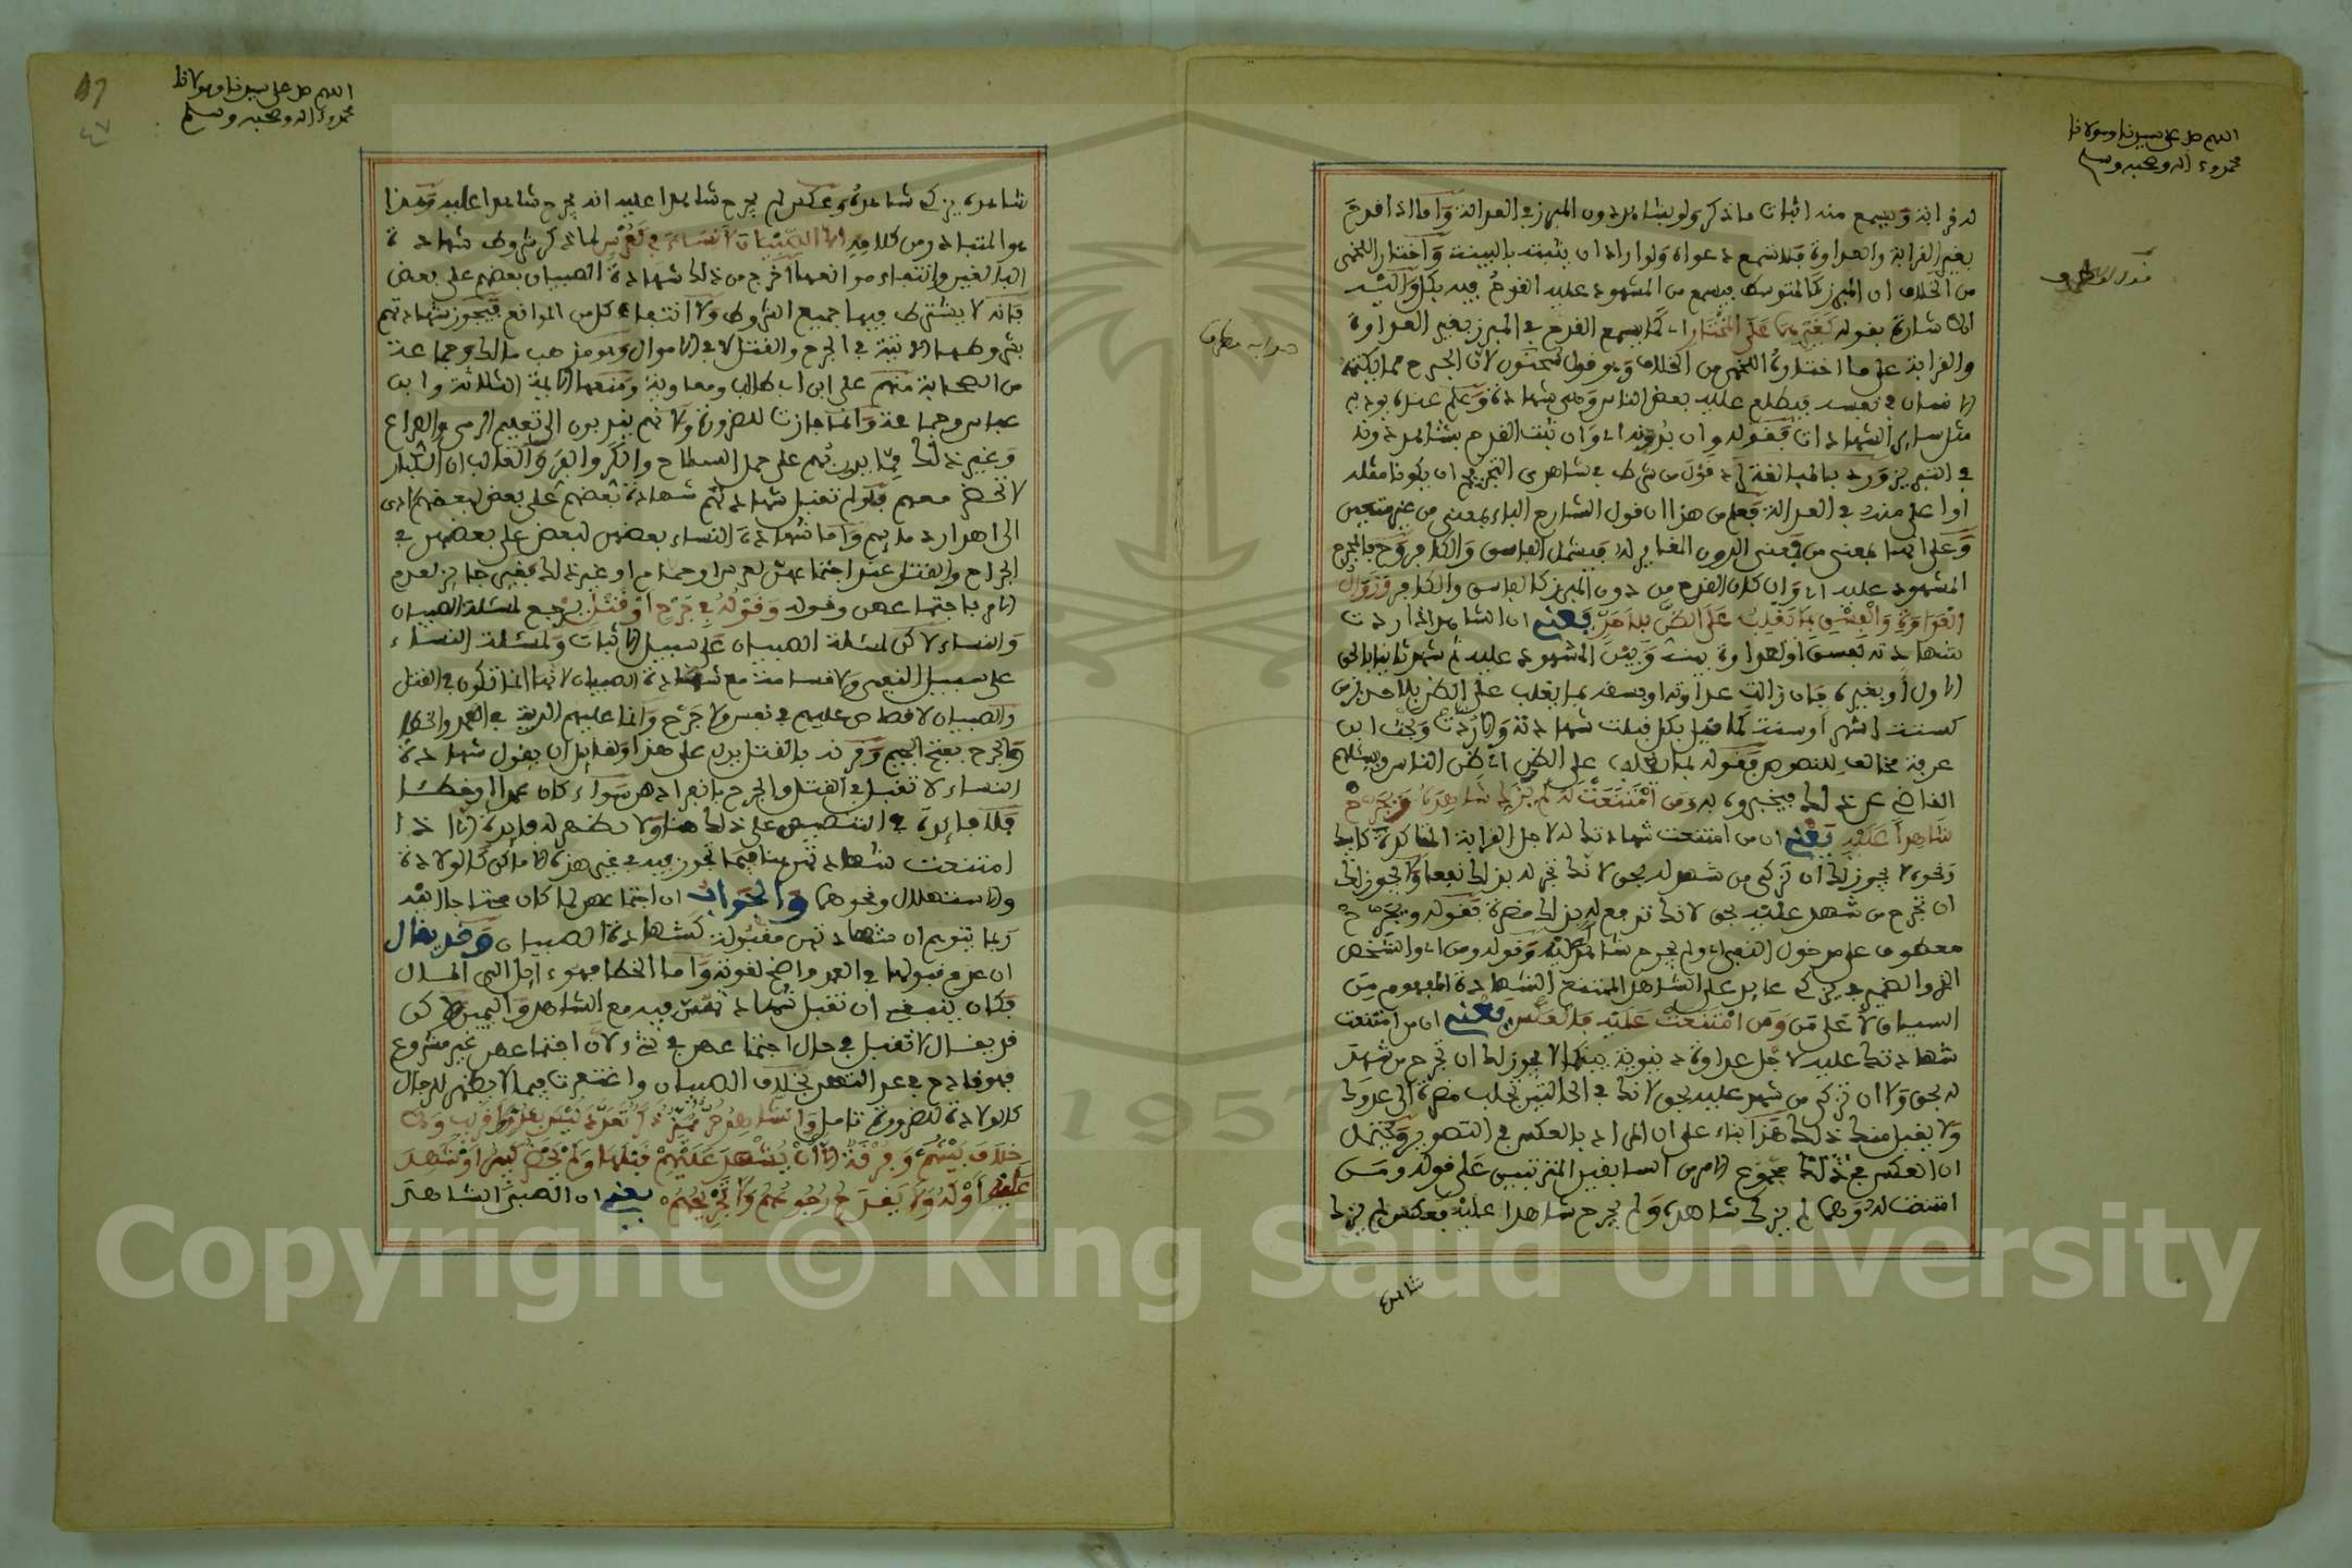 اللهم صل على سيدنا ومولانا
محمد وءاله وصحبه وسلم
له قرابة ويسمع منه اثبات ما ذكر ولو بشاهد دون المبرز في العدالة واما اذا قدح
بغير القرابة والعداوة فلا تسمع دعواه ولو اراد ان يثبته بالبينة واختار اللخمي
من الخلاف ان المبرز كالمتوسط فيسمع من المشهود عليه القدح فيه بكل واليه
الاشارة بقوله كغيرهما على المختار اي كما يسمع القدح في المبرز بغير العداوة
والقرابة على ما اختاره اللخمي من الخلاف وهو قول سحنون لان الجرح مما يكتمه
الانسان في نفسه فيطلع عليه بعض الناس وهي شهادة وعلم عنده يوديه
مثل ساير الشهادات فقوله وان بدونه اي وان ثبت القدح بشاهد دونه
في التبريز ورد بالمبالغة قول من شرط في شاهدي التجريح ان يكونا مثله
او اعلى منه في العدالة فعلم من هذا ان قول الشارح الباء بمعنى من غير متعين
وعلى انها بمعنى من فمعنى الدون المغاير له فيشمل الفاسق والكافر
المشهود عليه اي وان كان القدح من دون المبرز كالفاسق والكافر وزوال
العداوة والفسق بما يغلب على الظن بلا حد يعني ان الشاهد اذا ردت
شهادته لفسق او لعداوة بينه وبين المشهود عليه ثم شهد ثانيا بالحق
الاول او بغيره فان زالت عداوته او فسقه بما يغلب على الظن بلا حد بزمن
كستة اشهر او سنة كما قيل بكل قبلت شهادته والا ردت وبحث ابن
عرفة مخالف للنصوص فقوله بما يغلب على الظن اي ظن الناس ويسئلهم
القاضي عن ذلك فيخبروه به ومن امتنعت له لم يزك شاهده ويجرح
شاهدا عليه يعني ان من امتنعت شهادتك له لاجل القرابة المتاكدة كابيك
ونحوه لا يجوز لك ان تزكي من شهد له بحق لانك تجر له بذلك نفعا ولا يجوز لك
ان تجرح من شهد عليه بحق لانك تدفع له بذلك مضرة فقوله ويجرح
معطوف على مدخول النفي اي ولم يجرح شاهدا عليه وقوله ومن اي والشخص
الذي والضمير في يزك عايد على الشاهد الممتنع الشهادة المفهوم من
السياق لا على من ومن امتنعت عليه فالعكس يعني ان من امتنعت
شهادتك عليه لاجل عداوة دنيوية بينكما لا يجوز لك ان تجرح من شهد
له بحق ولا ان تزكي من شهد عليه بحق لانك في الحالتين تجلب مضرة الى عدوك
ولا يقبل منك ذلك هذا بناء على ان المراد بالعكس في التصوير ويحتمل
ان العكس في ذلك مجموع الامرين السابقين المترتبين على قوله ومن
امتنعت له وهما لم يزك شاهده ولم يجرح شاهدا عليه فعكس لم يزك
شاهده
اللهم صل على سيدنا ومولانا
محمد وءاله وصحبه وسلم
٤٧
شاهده يزكي شاهده وعكس لم يجرح شاهدا عليه انه يجرح شاهدا عليه وهذا
هو المتبادر من كلامه الا الصبيان لا نساء في كعرس لما ذكر شروط شهادة
البالغين وانتفاء موانعها اخرج من ذلك شهادة الصبيان بعضهم على بعض
فانه لا يشترط فيها جميع الشروط ولا انتفاء كل من الموانع فيجوز شهادتهم
بشروطها الاتية في الجرح والقتل لا في الاموال وهو مذهب مالك وجماعة
من الصحابة منهم علي ابن ابي طالب ومعاوية ومنعها الايمة الثلاثة وابن
عباس وجماعة وانما جازت للضرورة ولانهم يندبون الى تعليم الرمي والصراع
وغير ذلك مما يدربهم على حمل السلاح والكر والفر والغالب ان الكبار
لا تحضر معهم فلو لم تقبل شهادتهم شهادة بعضهم على بعض لبعضهم ادى
الى اهدار دمايهم واما شهادة النساء بعضهن لبعض على بعضهن في
الجراح والقتل عند اجتماعهن لعرس او حمام او غير ذلك فغير جايز لعدم
الامر باجتماعهن وقوله وقوله في جرح او قتل يرجع لمسئلة الصبيان
والنساء لاكن لمسئلة الصبيان على سبيل الاثبات ولمسئلة النساء
على سبيل النفي ولا قسامة مع شهادة الصبيان لانها انما تكون في القتل
والصبيان لا قصاص عليهم في نفس ولا جرح وانما عليهم الدية في العمد والخطا
والجرح بفتح الجيم وقرنه بالقتل يدل على هذا ولقايل ان يقول شهادة
النساء لا تقبل في القتل والجرح بانفرادهن سواء كان عمدا او خطئا
فلا فايدة في التنصيص على ذلك هنا ولا يظهر له فايدة الا اذا
امتنعت شهادتهن هنا فيما تجوز فيه في غير هذه الاماكن كالولادة
والاستهلال ونحوهما والجواب ان اجتماعهن لما كان محتاجا اليه
ربما يتوهم ان شهادتهن مقبولة كشهادة الصبيان وقد يقال
ان عدم قبولها في العمد واضح لقوته واما الخطا فهو ءايل الى المال
فكان ينبغي ان تقبل شهادتهن فيه مع الشاهد واليمين لاكن
قد يقال لا تقبل في حال اجتماعهن في شيء لان اجتماعهن غير مشروع
فهو قادح في عدالتهن بخلاف الصبيان واغتفرت فيما لا يظهر للرجال
كالولادة للضرورة تامل والشاهد حر مميز ذكر تعدد ليس بعدو ولا قريب ولا
خلاف بينهم وفرقة الا ان يشهد عليهم قبلها ولم يحضر كبير او تشهد
عليه اوله ولا يقدح رجوعهم ولا تجريحهم يعني ان الصبي الشاهد